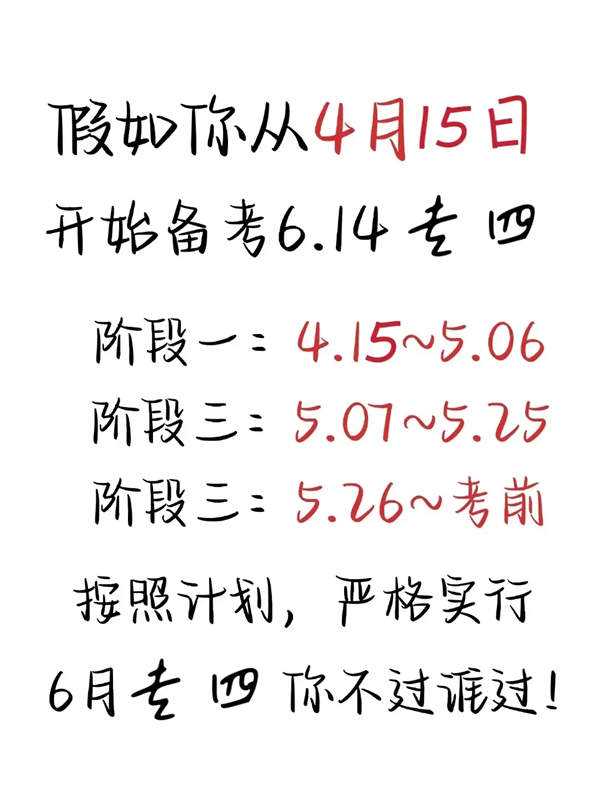 假如你从4月15日
开始备考6.14专四
阶段一：4.15~5.06
阶段三：5.07~5.25
阶段三：5.26~考前
按照计划，严格实行
6月专四你不过谁过！